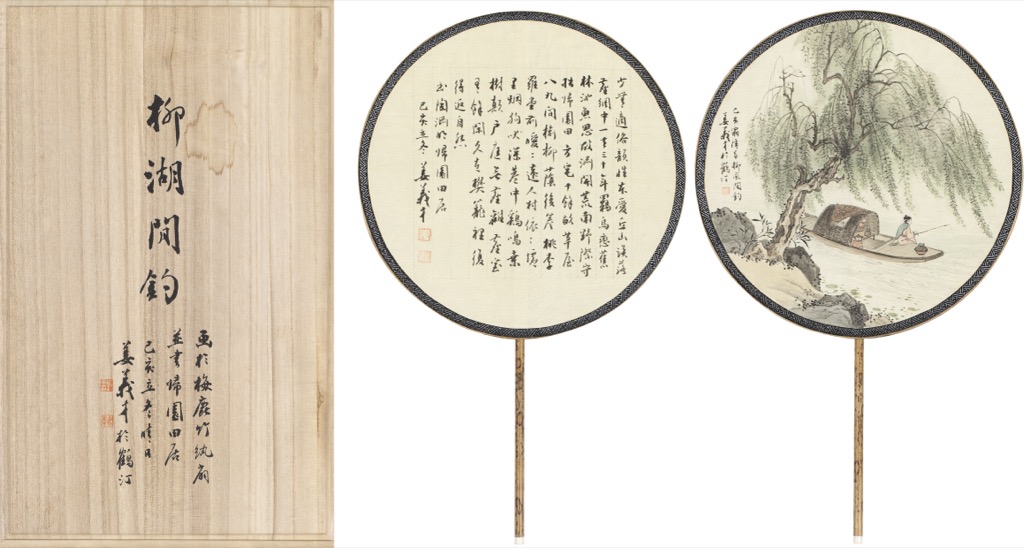 柳湖閒釣
画於梅鹿竹紈扇
並書歸園田居
己亥立冬晴日
姜義才於鶴汀
少無適俗韻性本愛丘山誤落
塵網中一去三十年羈鳥戀舊
林池魚思故淵開荒南野際守
拙歸園田方宅十餘畝草屋
八九間榆柳蔭後簷桃李
羅堂前曖〻遠人村依〻墟
里烟狗吠深巷中鷄鳴桑
樹顛戶庭無塵雜虛室
有餘閒久在樊籠裡復
得返自然
書陶淵明歸園田居
己亥立冬 姜義才
己亥柳風閒釣
姜義才於鶴汀